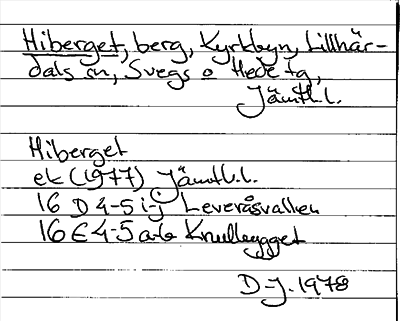 Hiberget, berg, Kyrkbyn, Lillhär-
dals sn, Svegs o Hede tg,
Jämtl.l.
Hiberget
ek (1977) Jämtl.l.
16 D 4-5 i-j Leveråsvallen
16 E 4-5 a-b Knulleygget
D-J. 1978